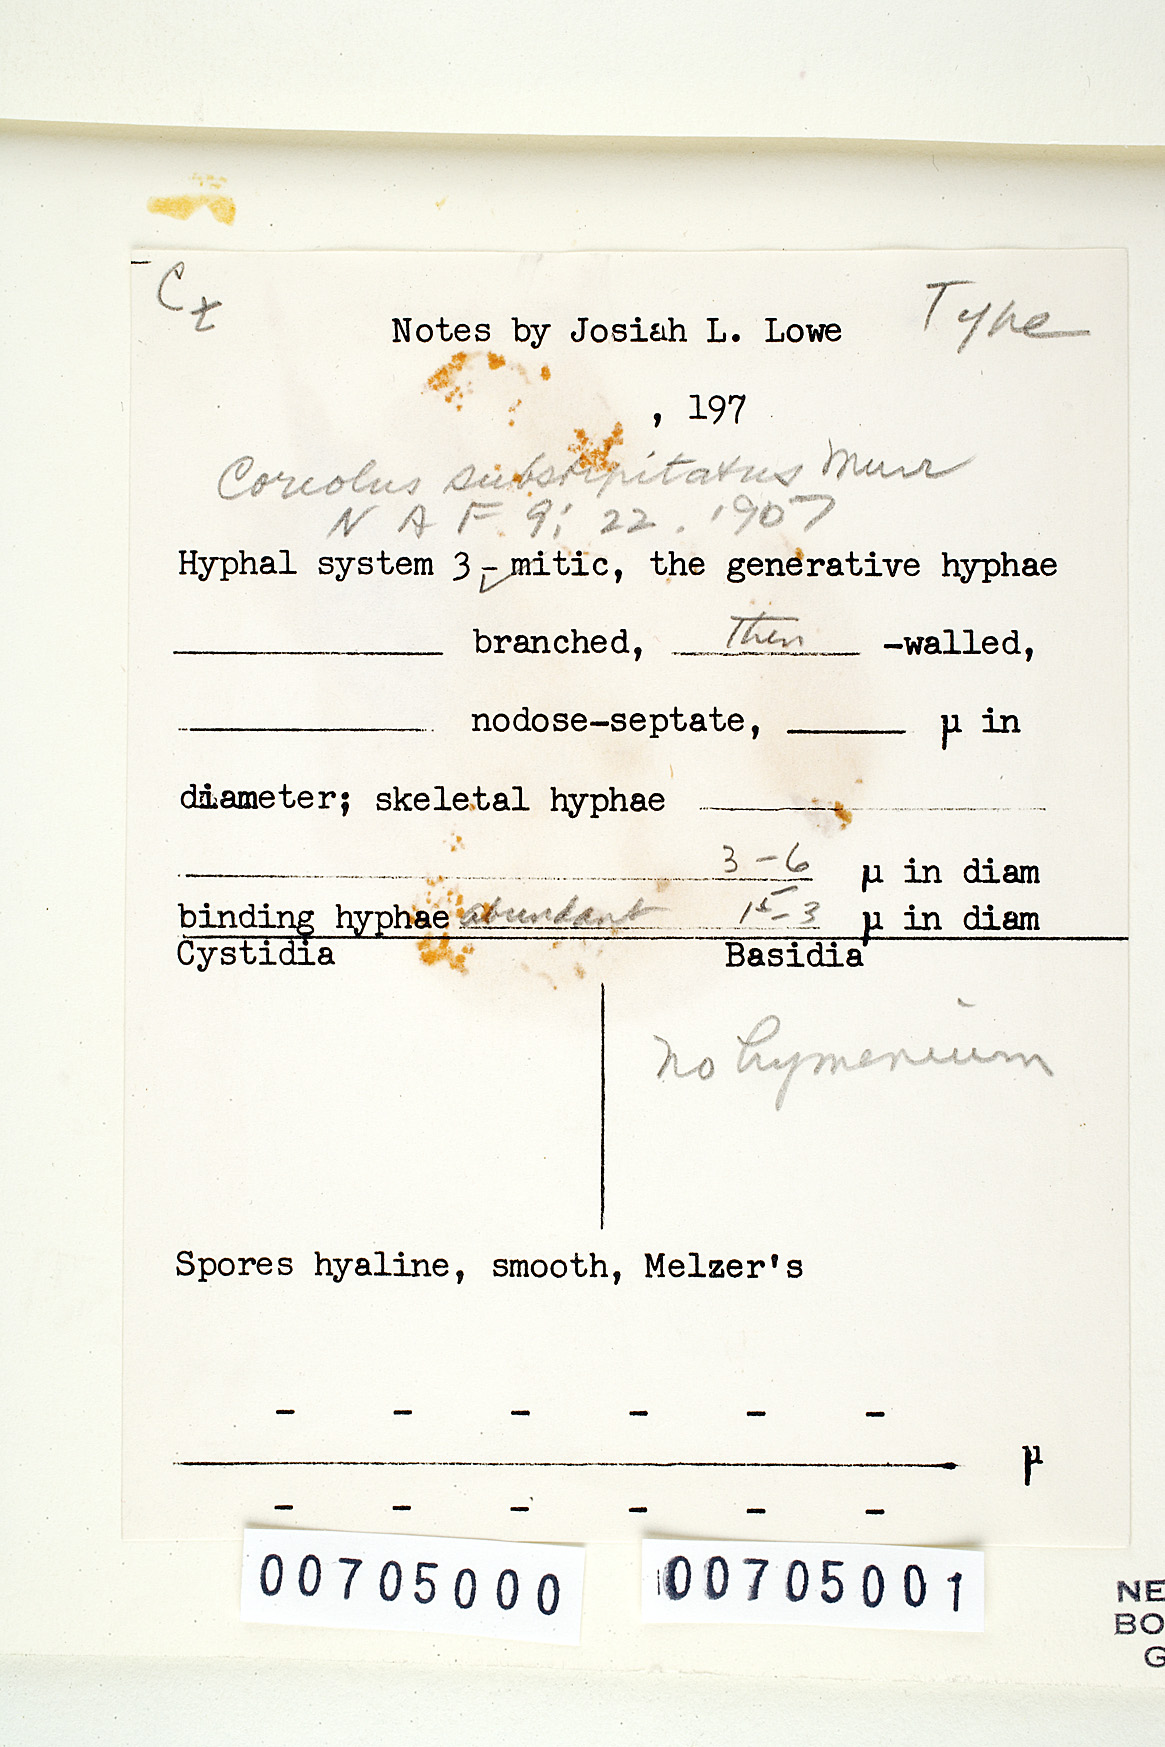 Ct
Type
Notes by Josiah L. Lowe
, 197
Coriolus substipitatus Murr
N A F 9: 22. 1907
Hyphal system 3-mitic, the generative hyphae
branched, Thin -walled,
nodose-septate, μ in
diameter; skeletal hyphae
3-6 μ in diam
binding hyphae abundant 1⁵-3 μ in diam
Cystidia Basidia
no hymenium
Spores hyaline, smooth, Melzer's
- - - - - -
μ
- - - - - -
00705000 00705001
NE
BO
G